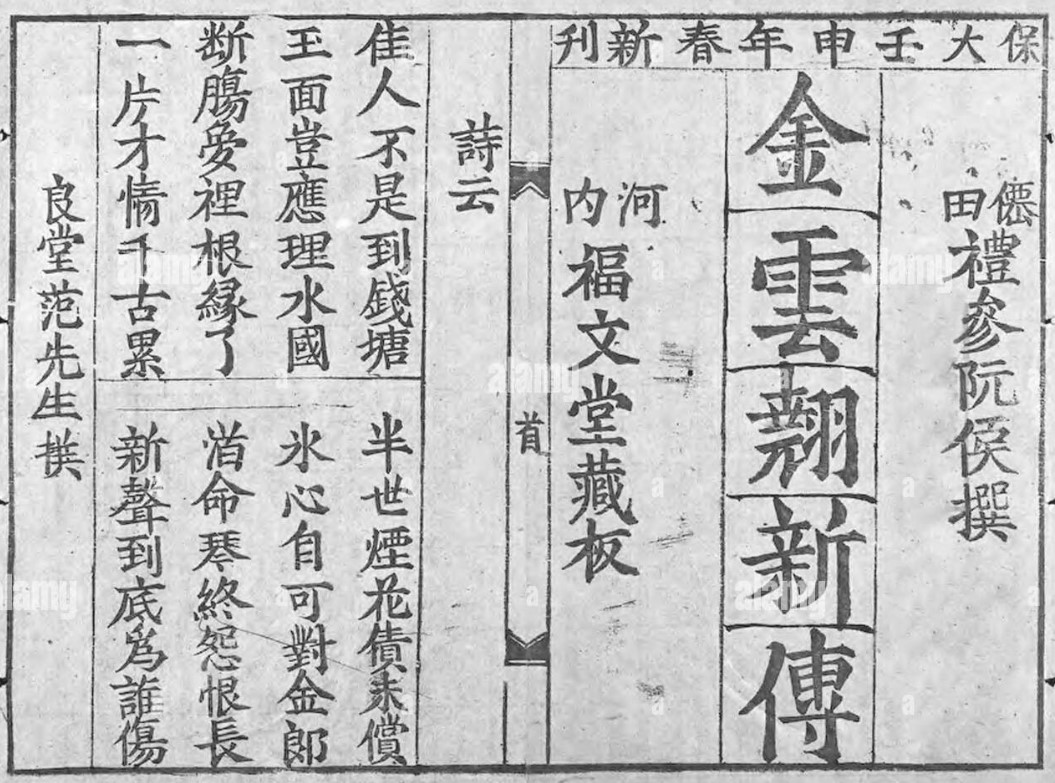 保大壬申年春新刊
僊田禮參阮侯撰
金雲翹新傳
河内福文堂藏板
首
詩云
佳人不是到錢塘 半世煙花債未償
玉面豈應理水國 氷心自可對金郎
断腸夢裡根緣了 薄命琴終怨恨長
一片才情千古累 新聲到底為誰傷
良堂范先生撰
alamy